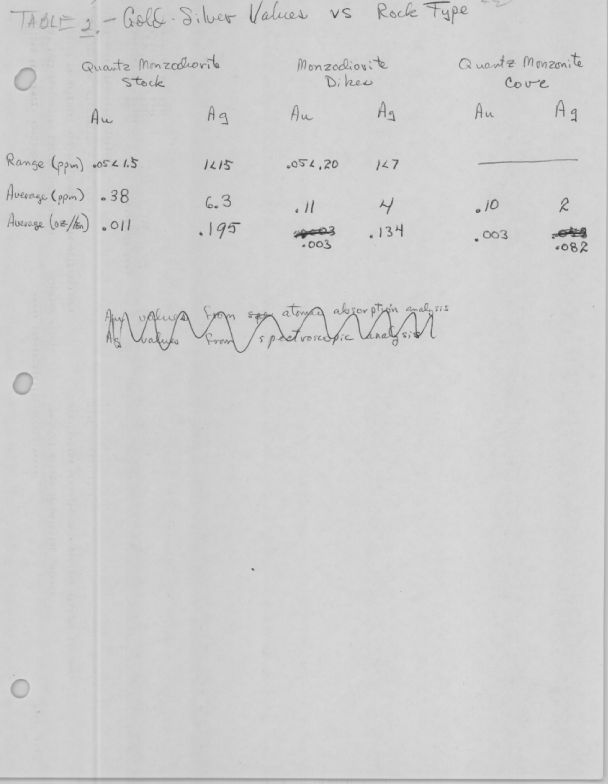 TABLE 2. - Gold-Silver Values vs Rock Type
Quartz Monzodiorite Monzodiorite Quartz Monzonite
Stock Dikes Core
Au Ag Au Ag Au Ag
Range (ppm) .05<1.5 1<15 .05<.20 1<7
Average (ppm) .38 6.3 .11 4 .10 2
Average (oz/ton) .011 .195 .003 .134 .003 .082
Au values from atomic absorption analysis
Ag values from spectroscopic analysis